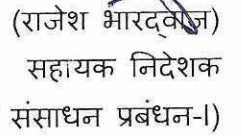 (राजेश भारद्वाज)
सहायक निदेशक
संसाधन प्रबंधन-I)